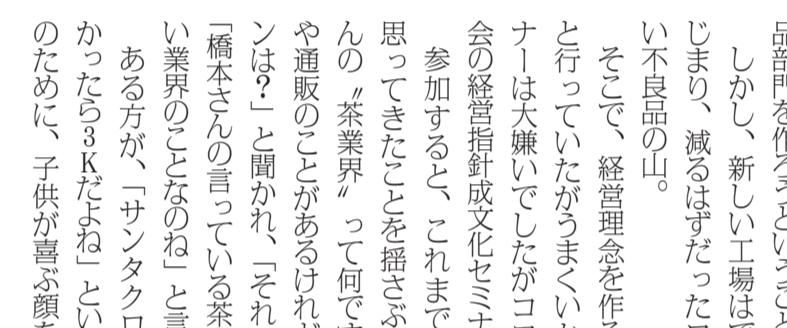 品部門を作ろうということ
しかし、新しい工場は
じまり、減るはずだった
い不良品の山。
そこで、経営理念を作
と行っていたがうまくいか
ナーは大嫌いでしたがコ
会の経営指針成文化セミナ
参加すると、これまで
思ってきたことを揺さぶ
んの〝茶業界〟って何です
や通販のことがあるけれど
ンは？」と聞かれ、「それ
「橋本さんの言っている茶
い業界のことなのね」と言
ある方が、「サンタクロ
かったら3Kだよね」とい
のために、子供が喜ぶ顔を